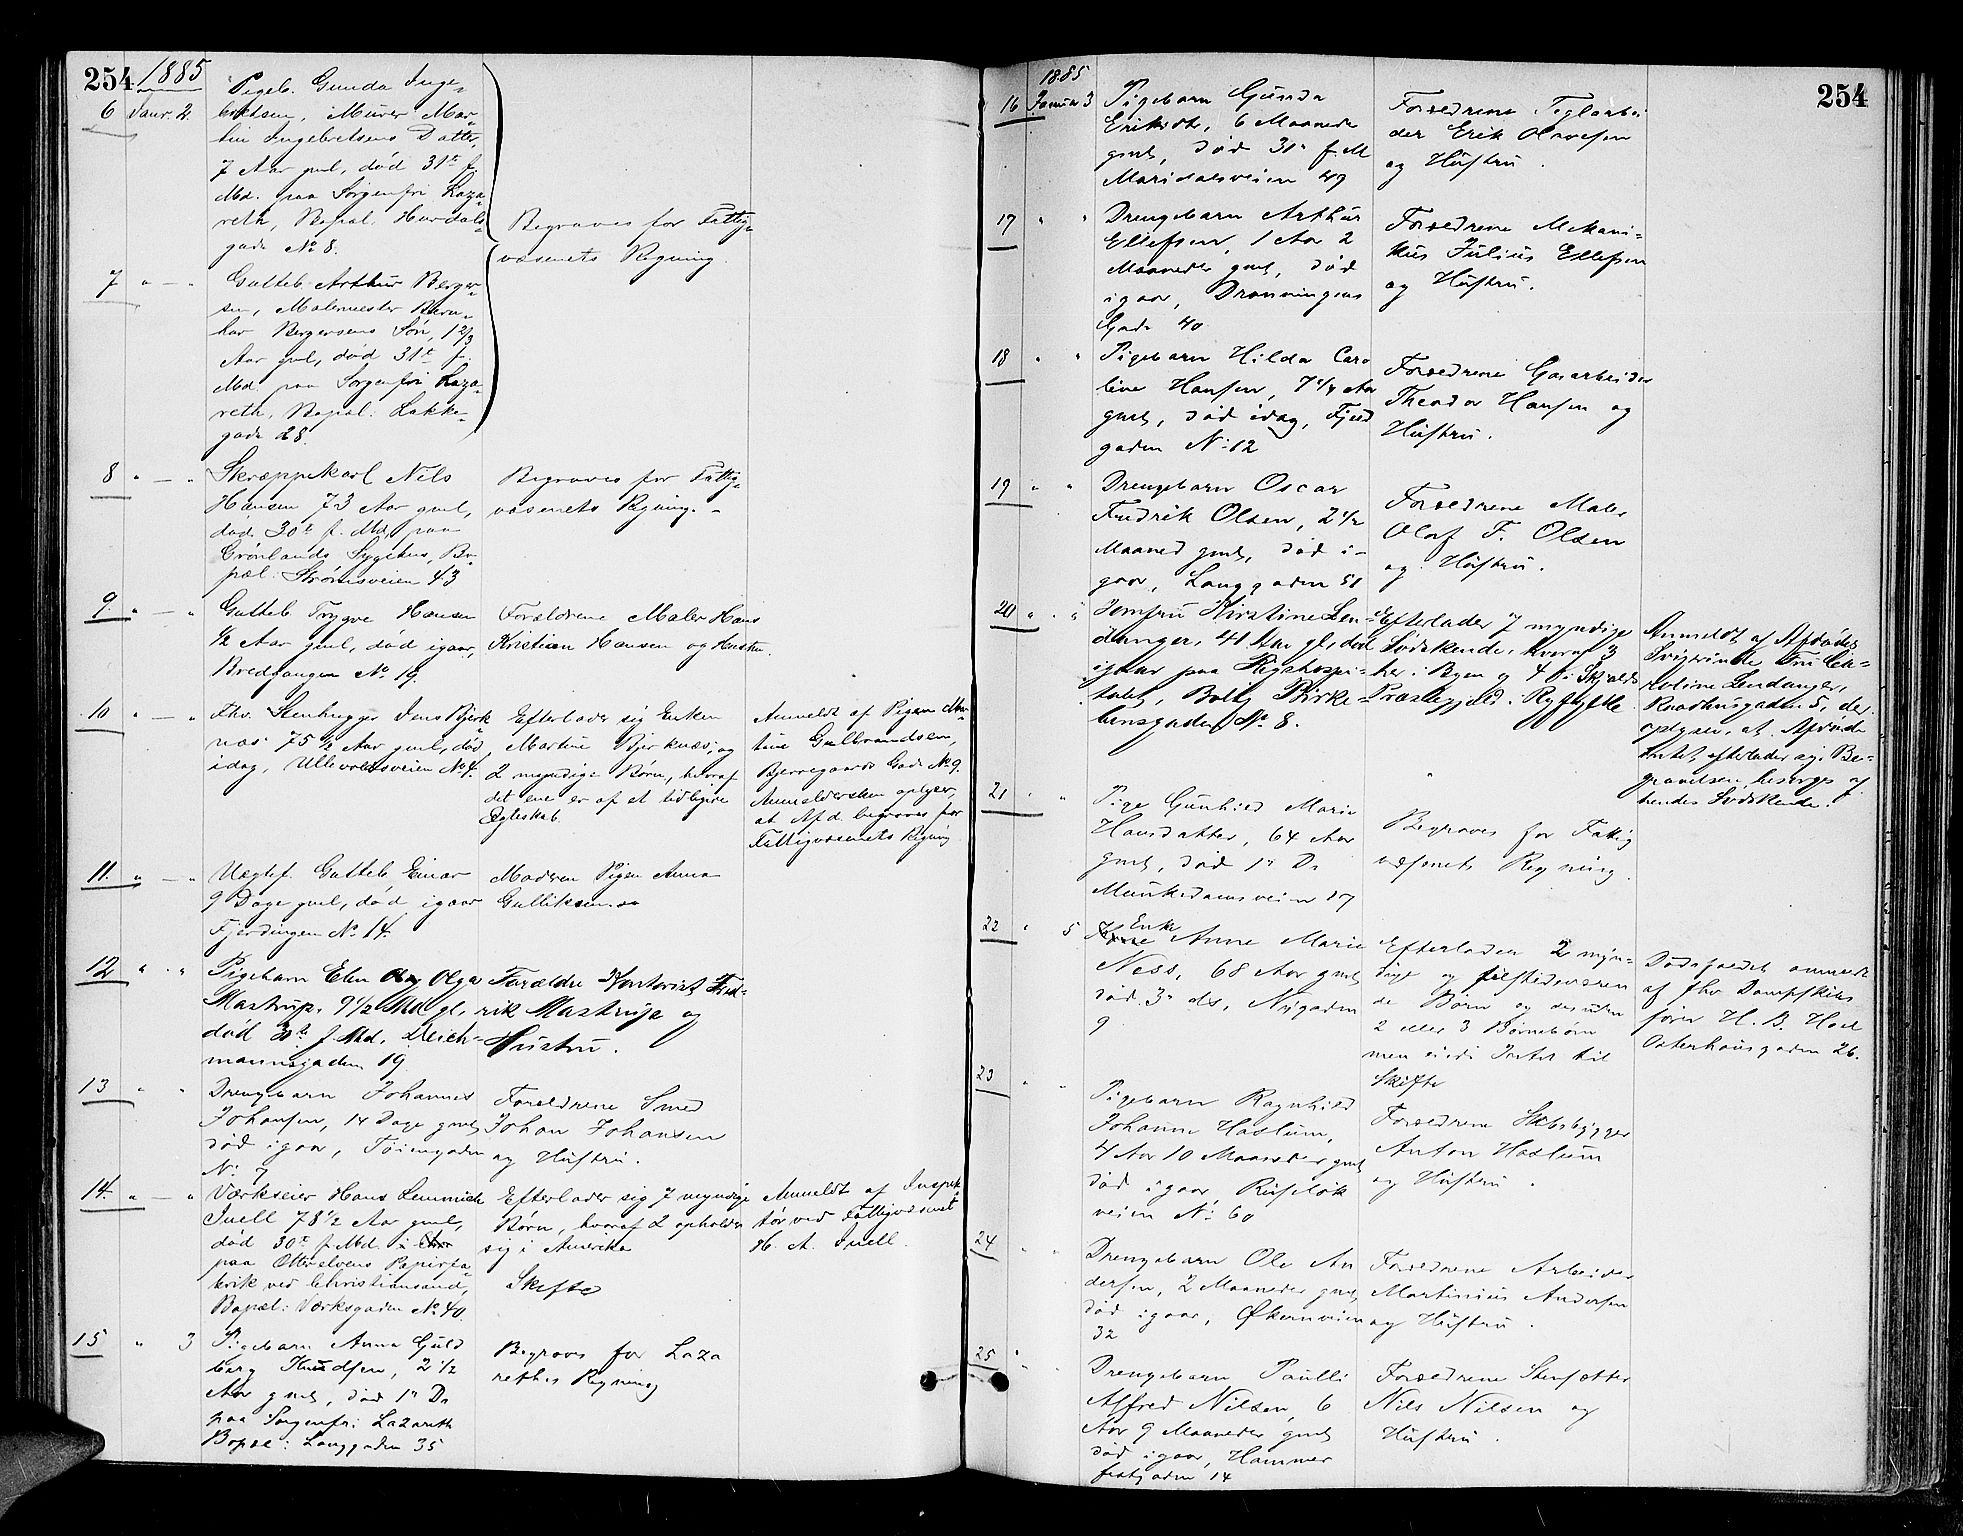 254
1885
6 Janr. 2.
Pigeb. Gunda Inge-
bretsen, Murer Mar-
tin Ingebretsens Datter,
7 Aar gml, død 31te f.
Md. paa Sorgenfri Laza-
reth, Bopæl: Hurdals-
gade No 8.
Begraves for Fattig-
væsenets Regning.
7 " — "
Gutteb. Arthur Berger-
sen, Malermester Bern-
har Bergersens Søn, 1 2/3
Aar gml, død 31te f.
Md. paa Sorgenfri Laza-
reth, Bopæl: Lakke-
gade 28.
8 " — "
Skræppekarl Nils
Hansen 73 Aar gml,
død 30te f. Md. paa
Grønlands Sygehus, Bo-
pæl: Strømsveien 43
Begraves for Fattig-
væsenets Regning. -
9 " — "
Gutteb. Trygve Hansen
1/2 Aar gml, død igaar,
Bredgangen No 19.
Forældrene Maler Hans
Kristian Hansen og Hustru.
10 " — "
Fhv. Stenhugger Jens Bjerk-
næs 75 1/2 Aar gml, død
idag, Ullevoldsveien No 4.
Efterlader sig Enken
Martine Bjerknæs, og
2 myndige Børn, hvoraf
det ene er af et tidligere
Ægteskab.
Anmeldt af Pigen Mar-
tine Gulbrandsen,
Bjerregaards Gade No 9.
Anmeldersken oplyser,
at Afd. begraves for
Fattigvæsenets Regning
11. " — "
Uægtef. Gutteb. Einar
9 Dage gml, død igaar
Fjerdingen No 14.
Modren Pigen Anna
Gulliksen
12 " . "
Pigebarn Elen Olga
Mastrup, 9 1/2 Md gl,
død 30te f. Md. Deich-
mannsgaden 19.
Forældre Kontorist Fred-
rik Mastrup og
Hustru.
13 " "
Drengebarn Johannes
Johansen, 14 Dage gmlt
død igaar, Tøiengaden
No 7
Forældrene Smed
Johan Johansen
og Hustru.
14. " — "
Værkseier Hans Lemmich
Juell 78 1/2 Aar gml,
død 30te f. Md. i
paa Otterelvens Papirfa-
brik ved Christiansand,
Bopæl: Værksgaden No 40.
Efterlader sig 7 myndige
Børn, hvoraf 2 opholder
sig i Amerika
Skifte
Anmeldt af Inspek-
tør ved Fattigvæsnet
H. A. Juell.
15 " 3
Pigebarn Anna Guld
berg Knudsen, 2 1/2
Aar gmlt, død 1st Ds
paa Sorgenfri Lazareth
Bopæl: Langgaden 35
Begraves for Laza
rethes Regning
254
1885
16 Januar 3
Pigebarn Gunda
Eriksdt, 6 Maaneder
gmlt, død 31st f. M
Maridalsveien 49
Forældrene Teglarbei
der Erik Olavesen
og Hustru.
17 " "
Drengebarn Arthur
Ellefsen, 1 Aar 2
Maaneder gmlt, død
igaar, Dronningens
Gade 40
Forældrene Mekani-
kus Julius Ellefsen
og Hustru.
18 " "
Pigebarn Hilda Caro
line Hansen, 7 1/4 Aar
gmlt, død idag, Fjerd
gaden No 12
Forældrene Gasarbeider
Theodor Hansen og
Hustru.
19 " "
Drengebarn Oscar
Fredrik Olsen, 2 1/2
Maaned gmlt, død i-
gaar, Langgaden 51
Forældrene Maler
Olaf F. Olsen
og Hustru.
20 " "
Jomfru Kirstine Len-
danger, 41 Aar gl, død
igaar paa Rigshospi-
talet, Bolig Birke-
bensgaden No 8.
Efterlader 7 myndige
Sødskende, hvoraf 3
her i Byen og 4 i Skjolds
Præstegjeld i Ryfylke
Anmeldt af Afdødes
Svigerinde Fru Ca-
roline Lendanger,
Raadhusgaden 5, der
oplyser, at Afdøde
Intet efterlader sig. Be-
gravelsen besørges af
hendes Sødskende.
21 " "
Pige Gunhild Marie
Hansdatter, 64 Aar
gmlt, død 1st Ds
Munkedamsveien 17
Begraves for Fattig
væsenets Regning.
22 " 5
Enke
Anne Marie
Ness, 68 Aar gmlt
død 3st ds, Nygaden
9
Efterlader 2 myn-
dige og tilstedeværen
de Børn og desuden
2 eller 3 Børnebørn
men eiede Intet til
Skifte
Dødsfaldet anmeldt
af fhv Dampskibs
fører H. B. Hoel
Osterhausgaden 26.
23 " "
Pigebarn Ragnhild
Johanne Haslum,
4 Aar 10 Maaneder gmlt
død igaar, Ruseløk
veien No 60
Forældrene Skibsbygger
Anton Haslum
og Hustru.
24 " "
Drengebarn Ole An
dersen, 2 Maaneder gmlt,
død igaar, Økernveien
32
Forældrene Arbeider
Martinius Andersen
og Hustru.
25 " "
Drengebarn Paulli
Alfred Nilsen, 6
Aar 9 Maaneder gmlt
død igaar, Hammer
festgaden 14
Forældrene Stensætter
Nils Nilsen og
Hustru.